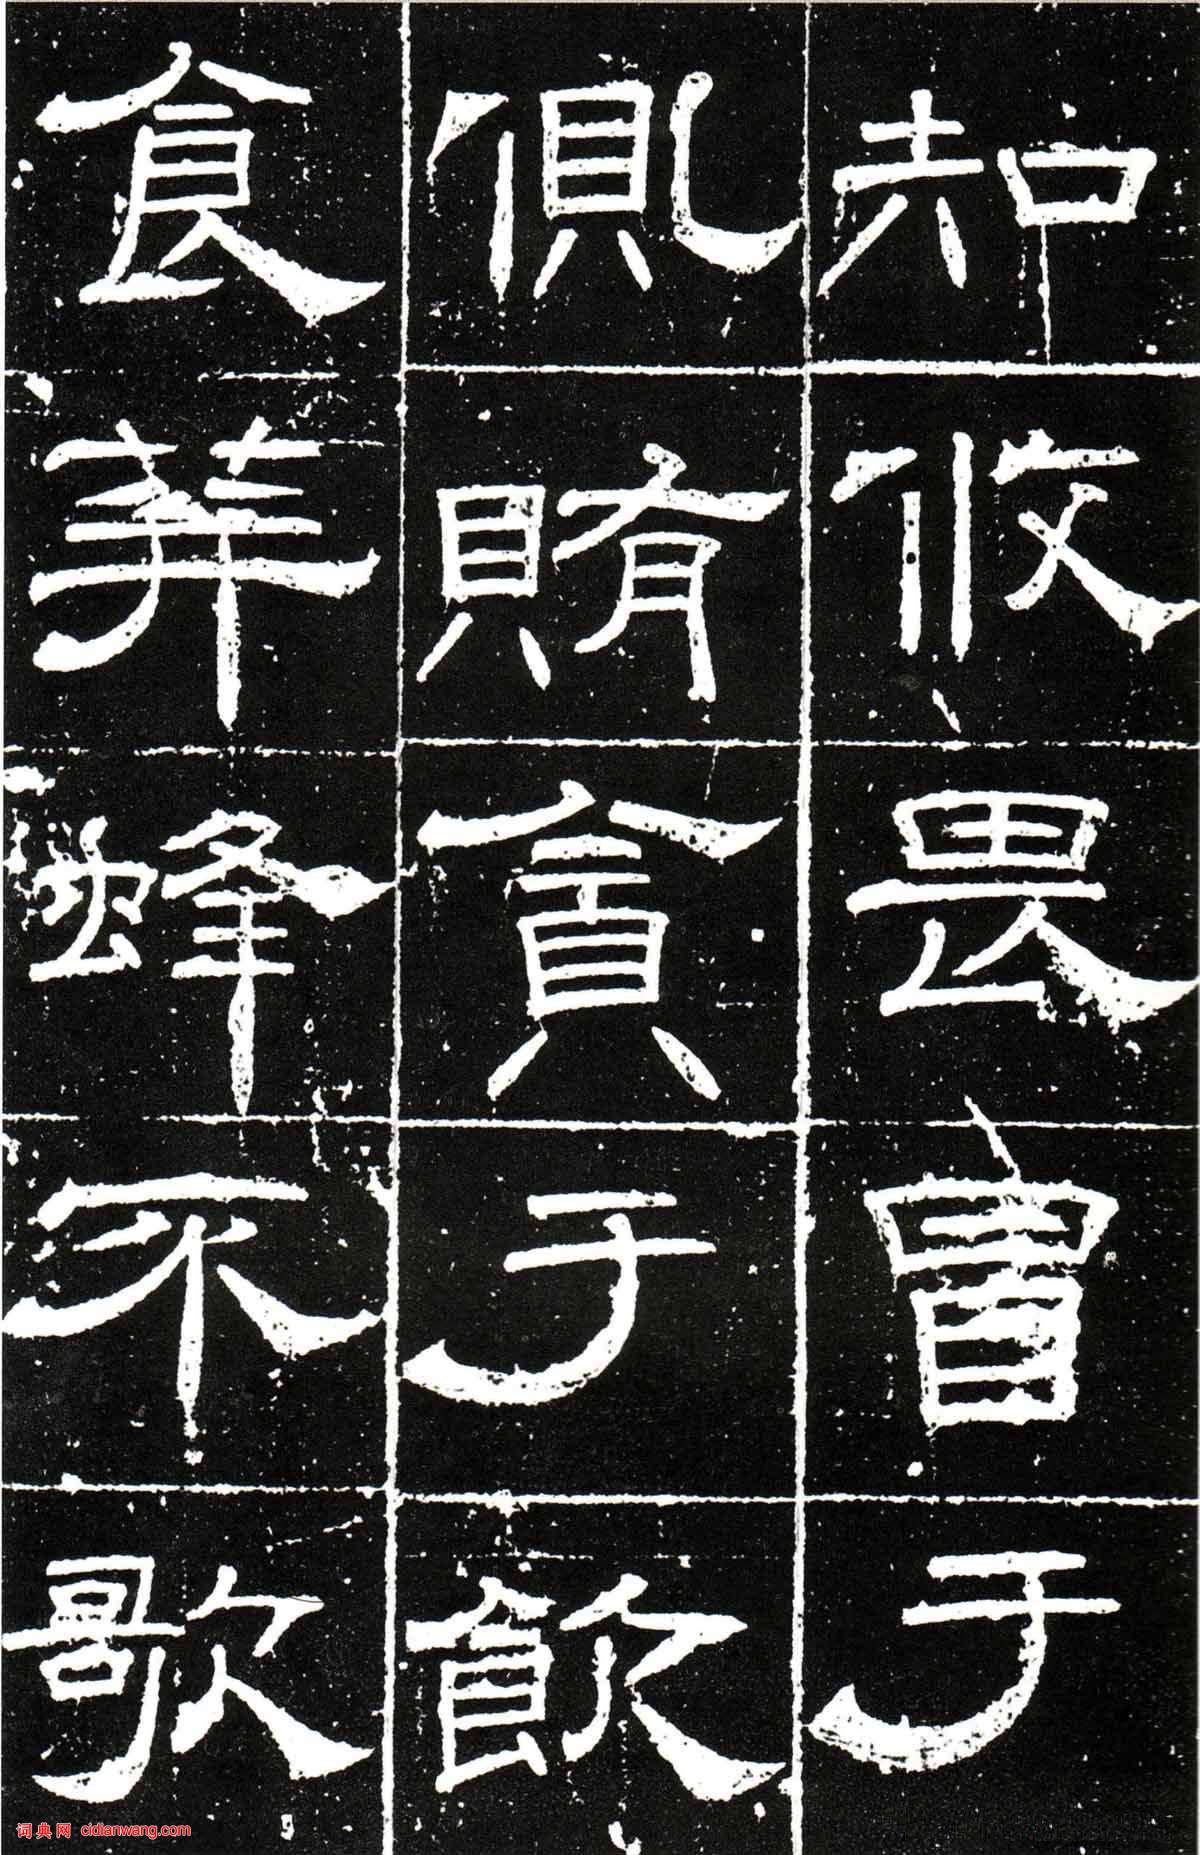 知攸畏冒于
貨賄貪于飲
食荓蜂不歌
词典网 cidianwang.com